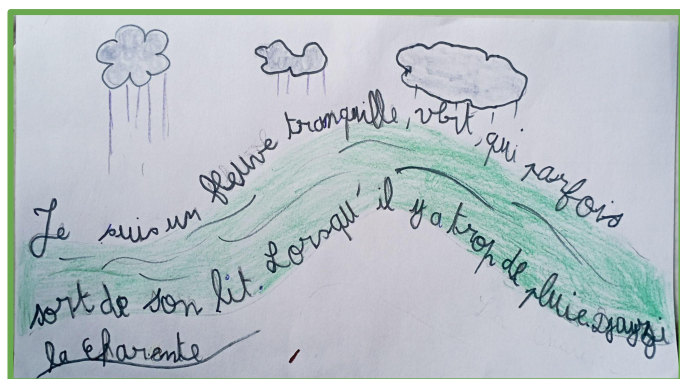 Je suis un fleuve tranquille, vert, qui parfois
sort de son lit. Lorsqu'il y a trop de pluie.
la Charente